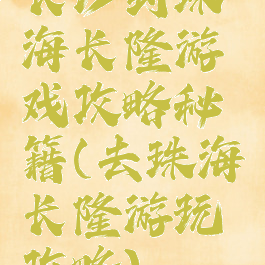 长沙到珠
海长隆游
戏攻略秘
籍(去珠海
长隆游玩
攻略)